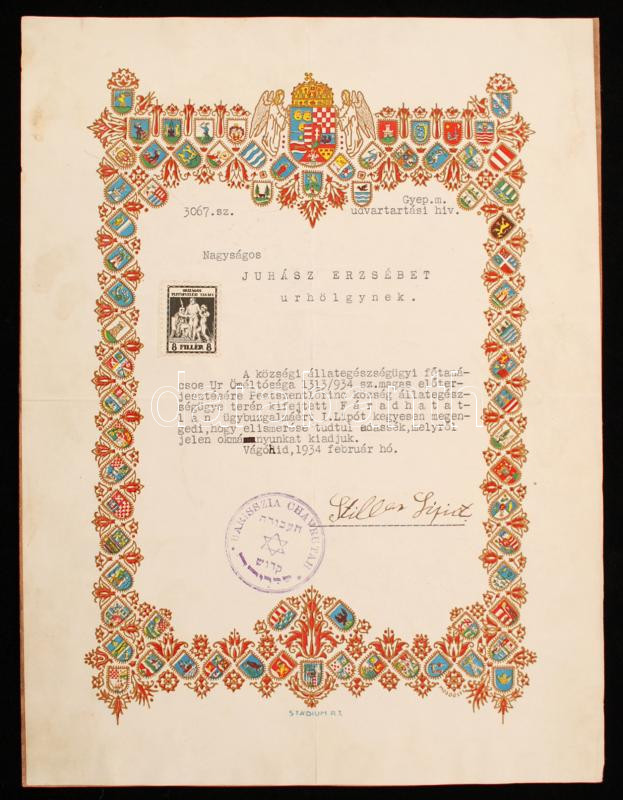 3067.sz.
Gyep.m.
udvartartási hiv.
Nagyságos
JUHÁSZ ERZSÉBET
urhölgynek.
8 FILLÉR 8
A községi állategészségügyi főtaná-
csos Ur Őméltósága 1313/934 sz.magas előter-
jesztésére Pestszentlőrinc község állategész-
ségügyi terén kifejtett Fáradhatat-
lan ügybuzgalmáért I.Lipót kegyesen megen-
gedi,hogy elismerése tudtul adassék,melyről
jelen okmányunkat kiadjuk.
Vágóhid,1934 február hó.
Stiller Lipót
BARISSZIA CHABRUTAH
חבורה
קדוש
STÁDIUM R.T.